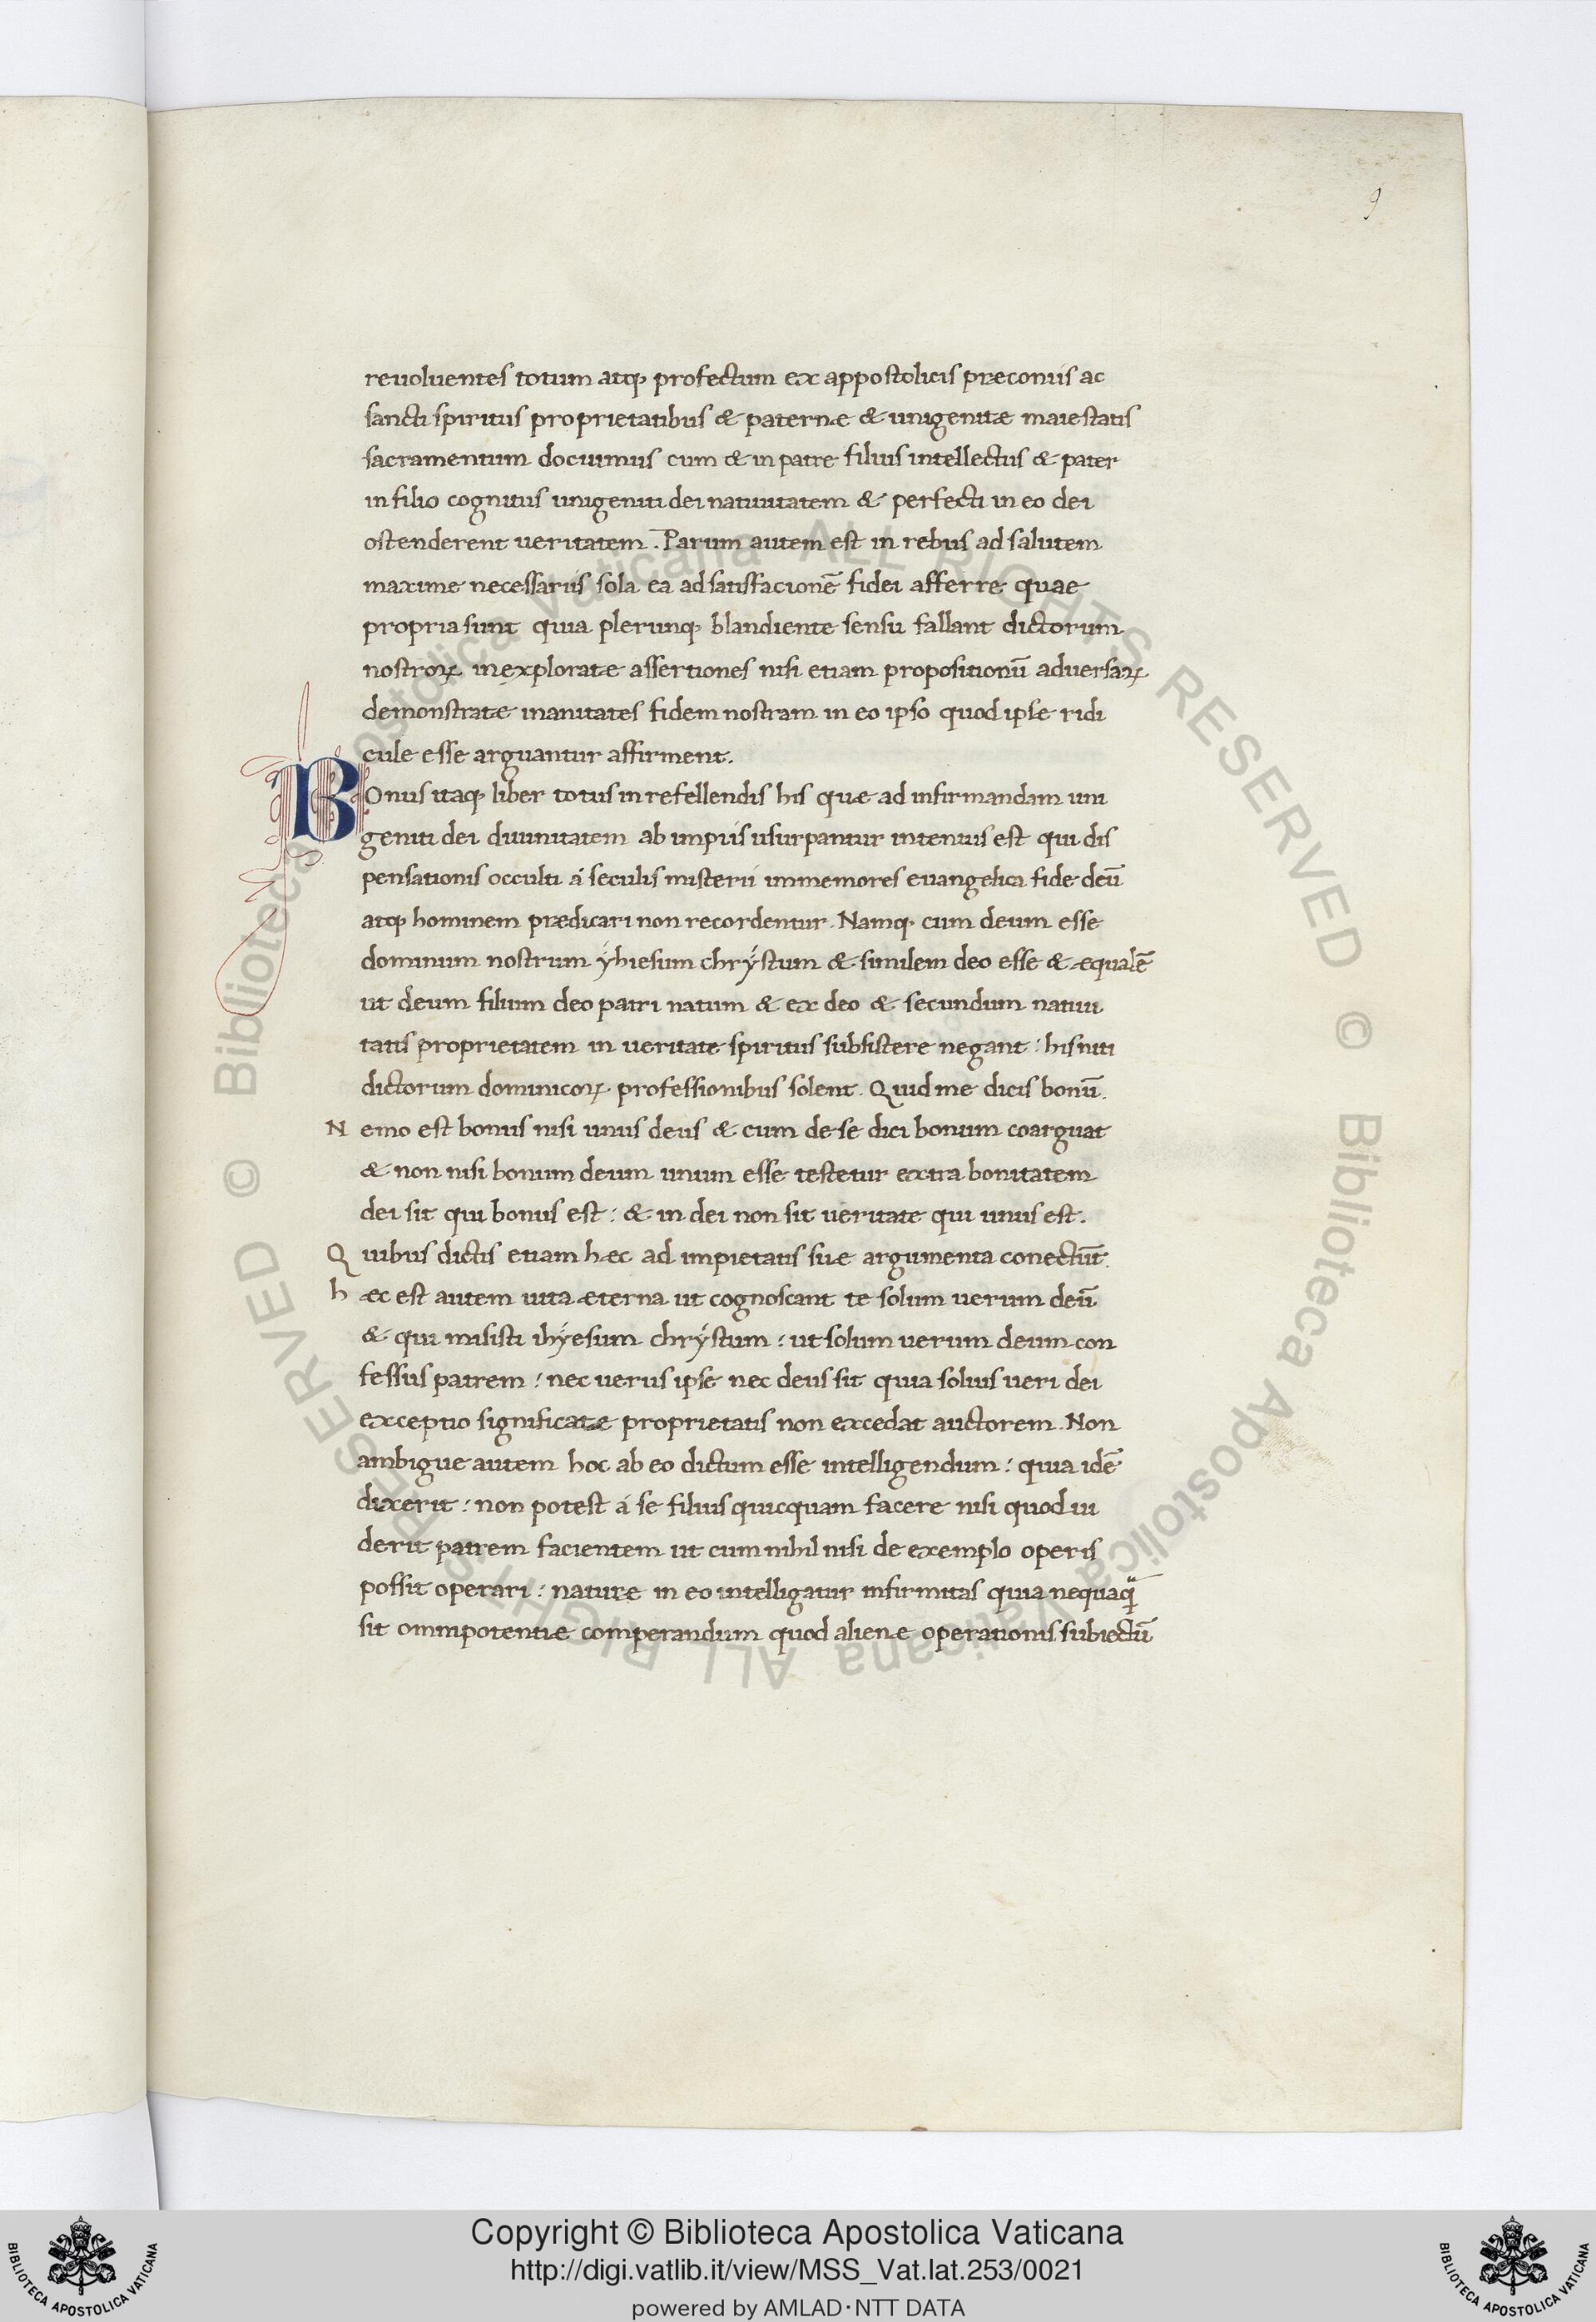 9
reuoluentes totum atq; profectum ex appostolicis præconiis ac
sancti spiritus proprietatibus & paternæ & unigenitæ maiestatis
sacramentum docuimus cum & in patre filius intellectus & pater
in filio cognitus unigeniti dei natiuitatem & perfecti in eo dei
ostenderent ueritatem. Parum autem est in rebus ad salutem
maxime necessariis sola ea ad satisfacionē fidei afferre quae
propria sunt quia plerunq; blandiente sensu fallant dictorum
nostroꝝ inexploratæ assertiones nisi etiam propositionū aduersaꝝ
demonstratæ inanitates fidem nostram in eo ipso quod ipse ridi
cule esse arguantur affirment.
BOnus itaq; liber totus in refellendis his quæ ad infirmandam uni
geniti dei diuinitatem ab impiis usurpantur intentus est qui dis
pensationis occulti á seculis misterii immemores euangelica fide deū
atq; hominem prædicari non recordentur. Namq; cum deum esse
dominum nostrum ẏhiesum chrẏstum & similem deo esse & æqualē
ut deum filium deo patri natum & ex deo & secundum natiui
tatis proprietatem in ueritate spiritus subsistere negant: his niti
dictorum dominicoꝝ professionibus solent. Quid me dicis bonū.
N emo est bonus nisi unus deus & cum de se dici bonum coarguat
& non nisi bonum deum unum esse testetur extra bonitatem
dei sit qui bonus est: & in dei non sit ueritate qui unus est.
Q uibus dictis etiam hæc ad impietatis suæ argumenta conectūt.
h æc est autem uita æterna ut cognoscant te solum uerum deū
& qui misisti ihẏesum chrẏstum: ut solum uerum deum con
fessus patrem: nec uerus ipse nec deus sit quia solius ueri dei
exceptio significatæ proprietatis non excedat auctorem. Non
ambigue autem hoc ab eo dictum esse intelligendum: quia idē
dixerit: non potest á se filius quicquam facere nisi quod ui
derit patrem facientem ut cum nihil nisi de exemplo operis
possit operari: naturæ in eo intelligatur infirmitas quia nequaq̄
sit omnipotentiæ comperandum quod alienæ operationis subiectū
© Biblioteca Apostolica Vaticana ALL RIGHTS RESERVED © Biblioteca Apostolica Vaticana ALL RIGHTS RESERVED
Copyright © Biblioteca Apostolica Vaticana
http://digi.vatlib.it/view/MSS_Vat.lat.253/0021
powered by AMLAD·NTT DATA
BIBLIOTECA APOSTOLICA VATICANA
BIBLIOTECA APOSTOLICA VATICANA